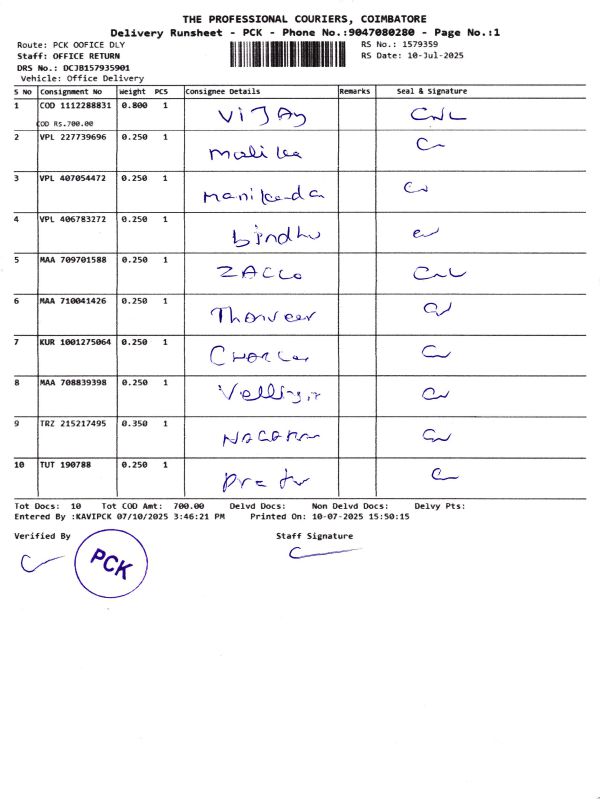 THE PROFESSIONAL COURIERS, COIMBATORE
Delivery Runsheet - PCK - Phone No.:9047080280 - Page No.:1
Route: PCK OOFICE DLY RS No.: 1579359
Staff: OFFICE RETURN RS Date: 10-Jul-2025
DRS No.: DCJB157935901
Vehicle: Office Delivery
S No Consignment No Weight PCS Consignee Details Remarks Seal & Signature
1 COD 1112288831 0.800 1 VIJAY
COD Rs.700.00
2 VPL 227739696 0.250 1
3 VPL 407054472 0.250 1
4 VPL 406783272 0.250 1 bindhu
5 MAA 709701588 0.250 1 ZACCO
6 MAA 710041426 0.250 1
7 KUR 1001275064 0.250 1
8 MAA 708839398 0.250 1
9 TRZ 215217495 0.350 1
10 TUT 190788 0.250 1
Tot Docs: 10 Tot COD Amt: 700.00 Delvd Docs: Non Delvd Docs: Delvy Pts:
Entered By :KAVIPCK 07/10/2025 3:46:21 PM Printed On: 10-07-2025 15:50:15
Verified By Staff Signature
PCK